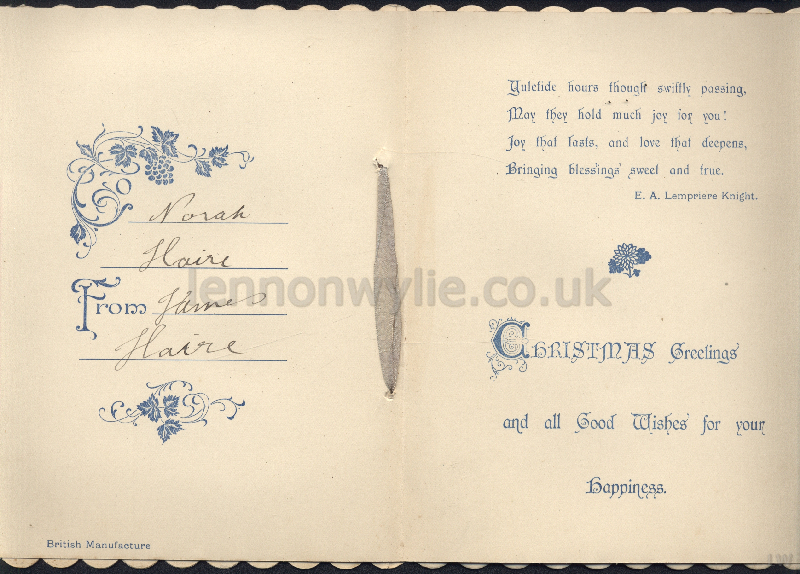 To Norah
Haire
From James
Haire
British Manufacture
Yuletide hours though swiftly passing,
May they hold much joy for you!
Joy that lasts, and love that deepens,
Bringing blessings sweet and true.
E. A. Lempriere Knight.
Christmas Greetings
and all Good Wishes for your
Happiness.
lennonwylie.co.uk